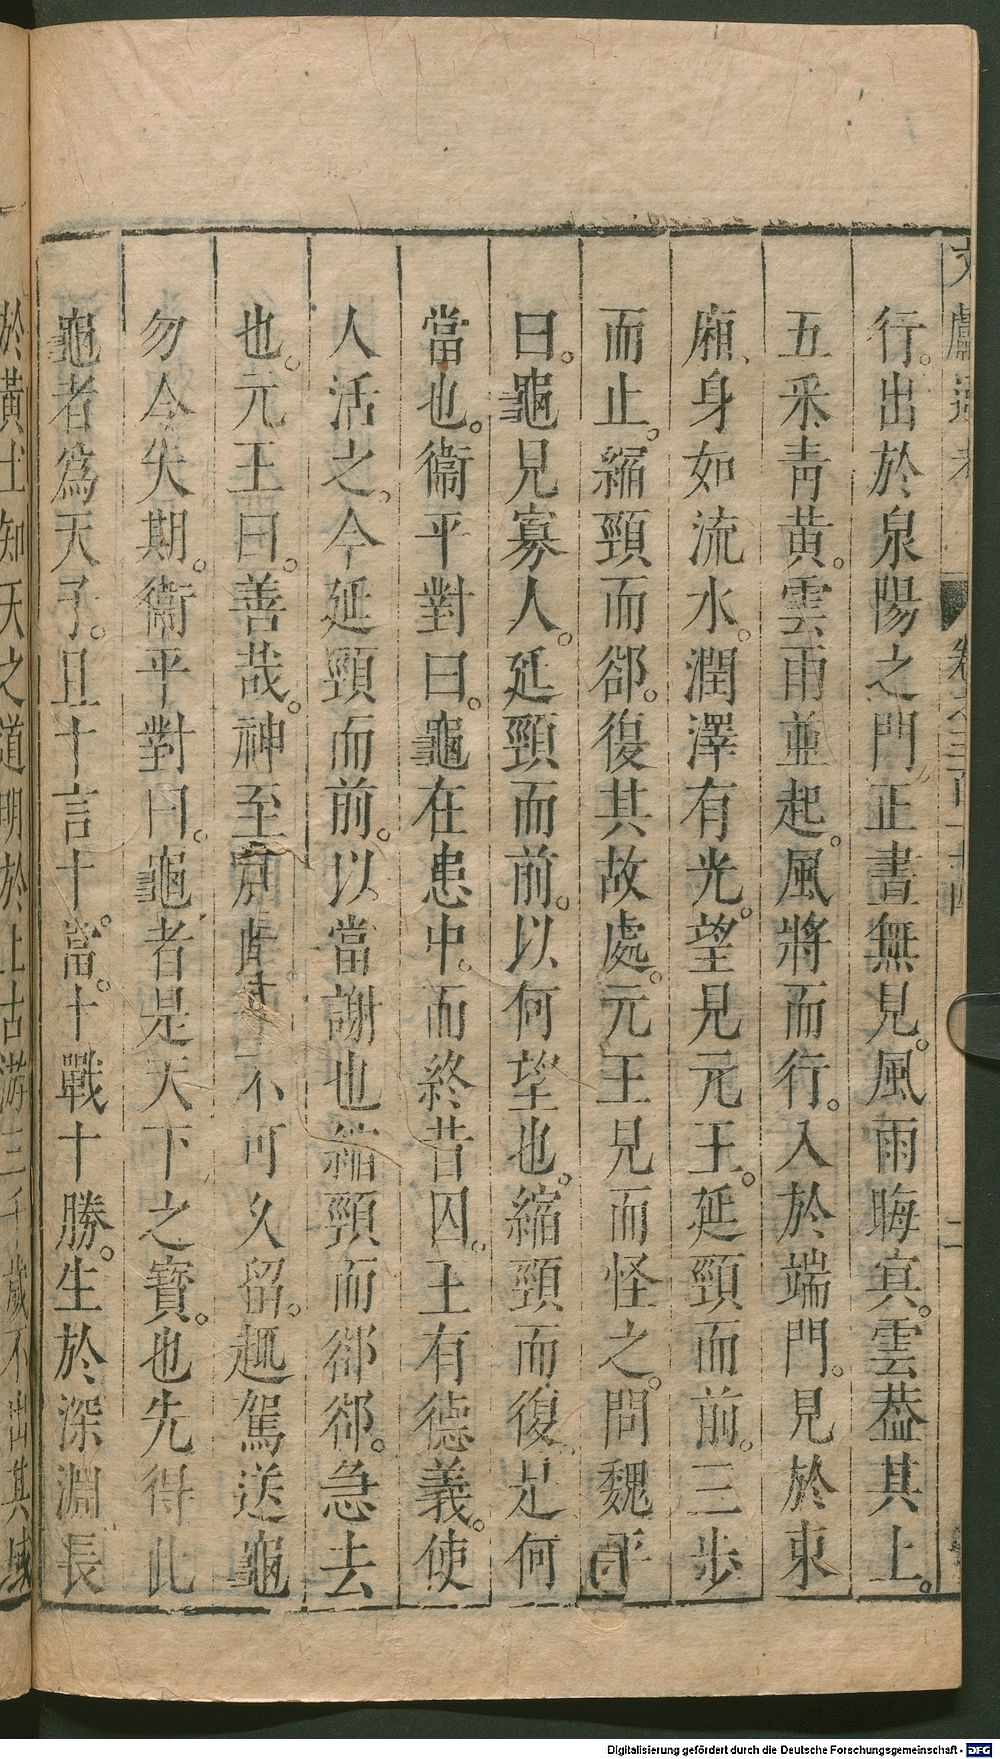 行。出於泉陽之門正晝無見。風雨晦冥。雲葢其上。
五釆青黄。雲雨並起。風將而行。入於端門。見於東
廂、身如流水。潤澤有光。望見元王。延頸而前。三歩
而止。縮頸而郤。復其故處。元王見而怪之。問魏平
曰。龜見寡人。延頸而前。以何望也。縮頸而復是何
當也。衞平對曰。龜在患中。而終昔囚。王有德義。使
人活之。今延頸而前。以當謝也縮頸而郤郤。急去
也。元王曰。善哉。神至 不可久留。趣駕送龜
勿令失期。衞平對曰。龜者是天下之寳。也先得此
龜者爲天子。且十言十。當。十戰十勝。生於深淵長
於黄土知天之道明於上古游三千歲不出其域
Digitalisierung gefördert durch die Deutsche Forschungsgemeinschaft - DFG